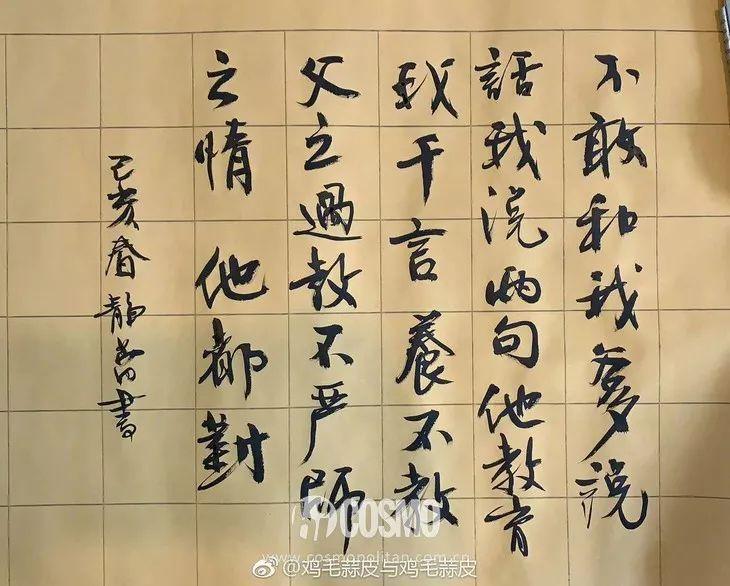 不敢和我爹説
話我説兩句他教育
我千言養不教
父之過教不严師
之情 他都對
己亥春靜書
COSMO
www.cosmopolitan.com.cn
@鸡毛蒜皮与鸡毛蒜皮